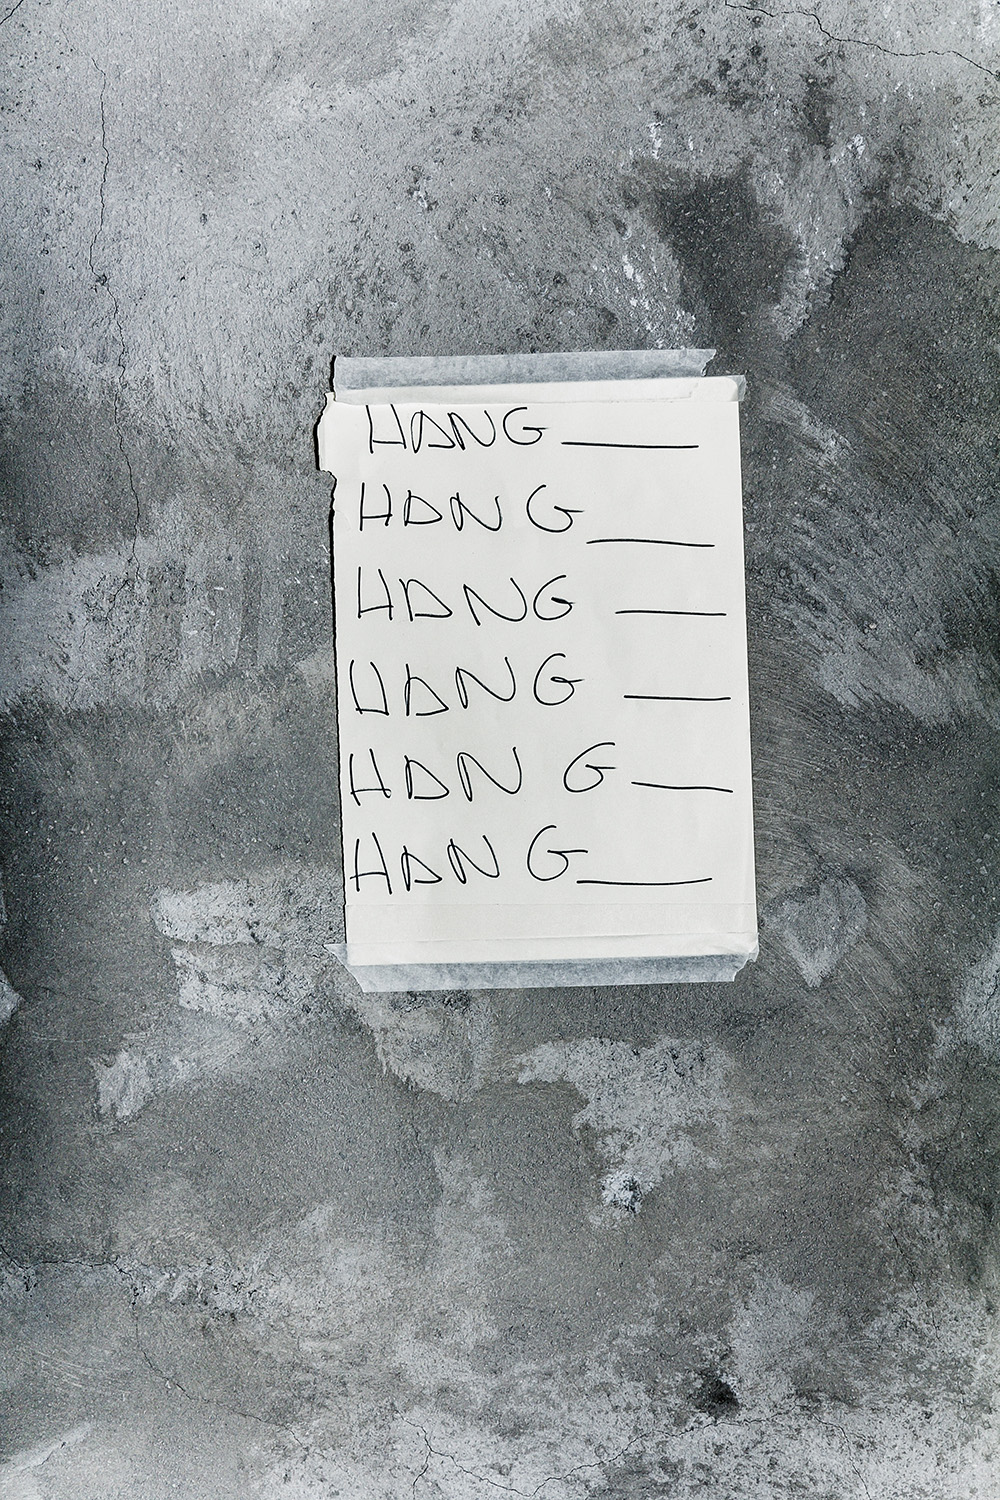 HANG ____
HANG ____
HANG ____
HANG ____
HANG ____
HANG ____